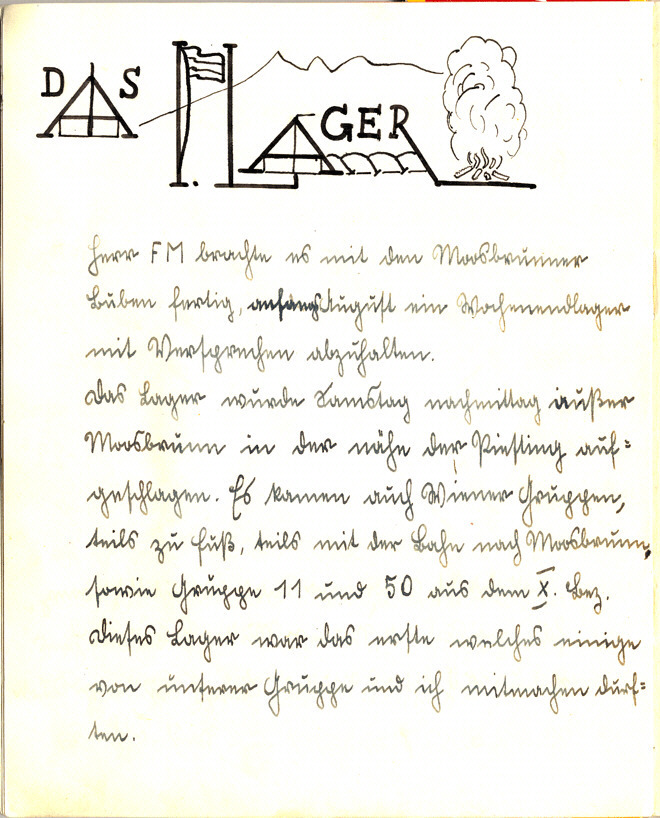 DAS LAGER
Herr FM brachte es mit den Moosbrunner
Buben fertig, anfangs August ein Wochenendlager
mit Versprechen abzuhalten.
Das Lager wurde Samstag nachmittag außer
Moosbrunn in der nähe der Piesting auf=
geschlagen. Es kamen auch Wiener Gruppen,
teils zu Fuß, teils mit der Bahn nach Moosbrunn,
sowie Gruppe 11 und 50 aus dem X. Bez.
Dieses Lager war das erste welches einige
von unserer Gruppe und ich mitmachen durf=
ten.